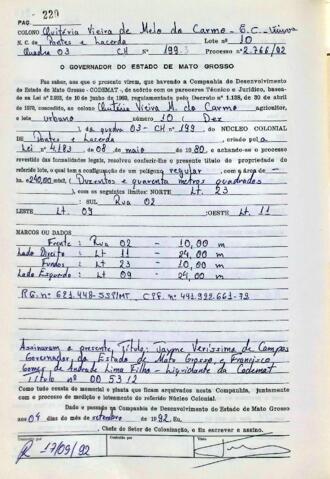 PAG. 229
COLONO Quitéria Vieira de Melo do Carmo - E.C. Viúva
N. C. de Pontes e Lacerda Lote nº 10
Quadra 03 CH Nº 199 Processo nº 2.766/92
O GOVERNADOR DO ESTADO DE MATO GROSSO
Faz saber, aos que o presente virem, que havendo a Companhia de Desenvolvimento
do Estado de Mato Grosso - CODEMAT -, de acordo com os pareceres Técnico e Jurídico, basea-
do na Lei nº de 10 de junho de regulamentado pelo Decreto nº 1.138, de 30 de abril
de 1970, concedido, ao colono Quitéria Vieira M. do Carmo agricultor,
o lote urbano número 10 ( Dez
) da quadra 03 - CH nº 199 do NÚCLEO COLONIAL
de Pontes e Lacerda criado pela
Lei nº 4.183 de 08 de maio de 1980, e achando-se o processo
revestido das formalidades legais, resolveu conferir-lhe o presente título de propriedade do
referido lote, o qual tem a configuração de um polígono regular, com a área de -
ha. 240,00 m2 ( Duzentos e quarenta metros quadrados
), com os seguintes limites: NORTE Lt. 23
: SUL Rua 02
LESTE Lt. 09 :OESTE Lt. 11
MARCOS OU DADOS
Frente : Rua 02 - 10,00 m
Lado Direito : Lt 11 - 24,00 m
Fundos : Lt 23 - 10,00 m
Lado Esquerdo : Lt 09 - 24,00 m
R.G. nº 621.448-SSP/MT C.P.F. nº 441.322.661-72
Assinaram o presente, Título: Jayme Veríssimo de Campos
Governador do Estado de Mato Grosso e Francisco
Gomes de Andrade Lima Filho - Liquidante da Codemat
Título nº 00 5312
Como tudo consta do memorial e planta que ficam arquivados nesta Companhia, juntamente
com o processo de medição e loteamento do referido Núcleo Colonial.
Dado e passado na Companhia de Desenvolvimento do Estado de Mato Grosso
aos 04 dias do mês de setembro de 1992. Eu,
, Chefe do Setor de Colonização, o fiz escrever e assino.
17/09/92
Visto